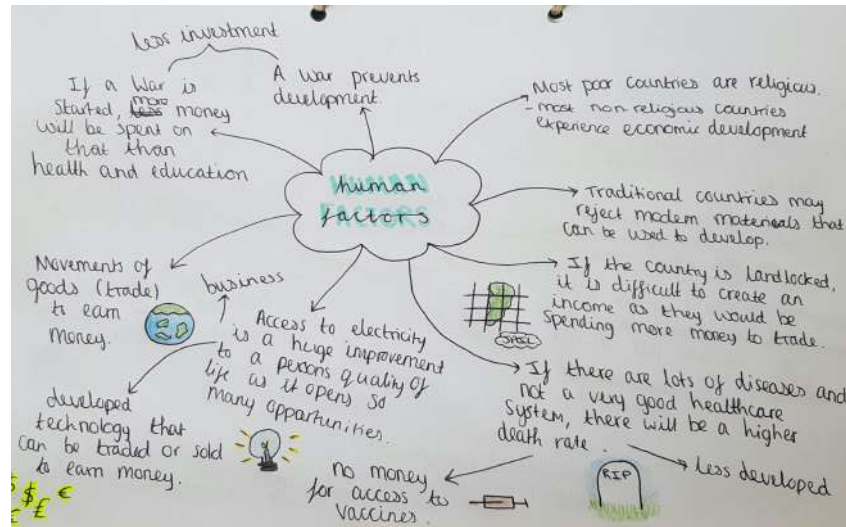 less investment
If a War is
Started, more money
will be spent on
that than
health and education
A war prevents
development.
Most poor countries are religious.
- most non religious countries
experience economic development
human
factors
Traditional countries may
reject modern materials that
can be used to develop.
If the country is landlocked,
it is difficult to create an
income as they would be
spending more money to trade.
Movements of
goods (trade)
to earn
money.
business
Access to electricity
is a huge improvement
to a persons quality of
life as it opens so
many opportunities.
developed
technology that
can be traded or sold
to earn money.
If there are lots of diseases and
not a very good healthcare
system, there will be a higher
death rate.
no money
for access to
vaccines.
RIP
less developed
$ $ €
€ £